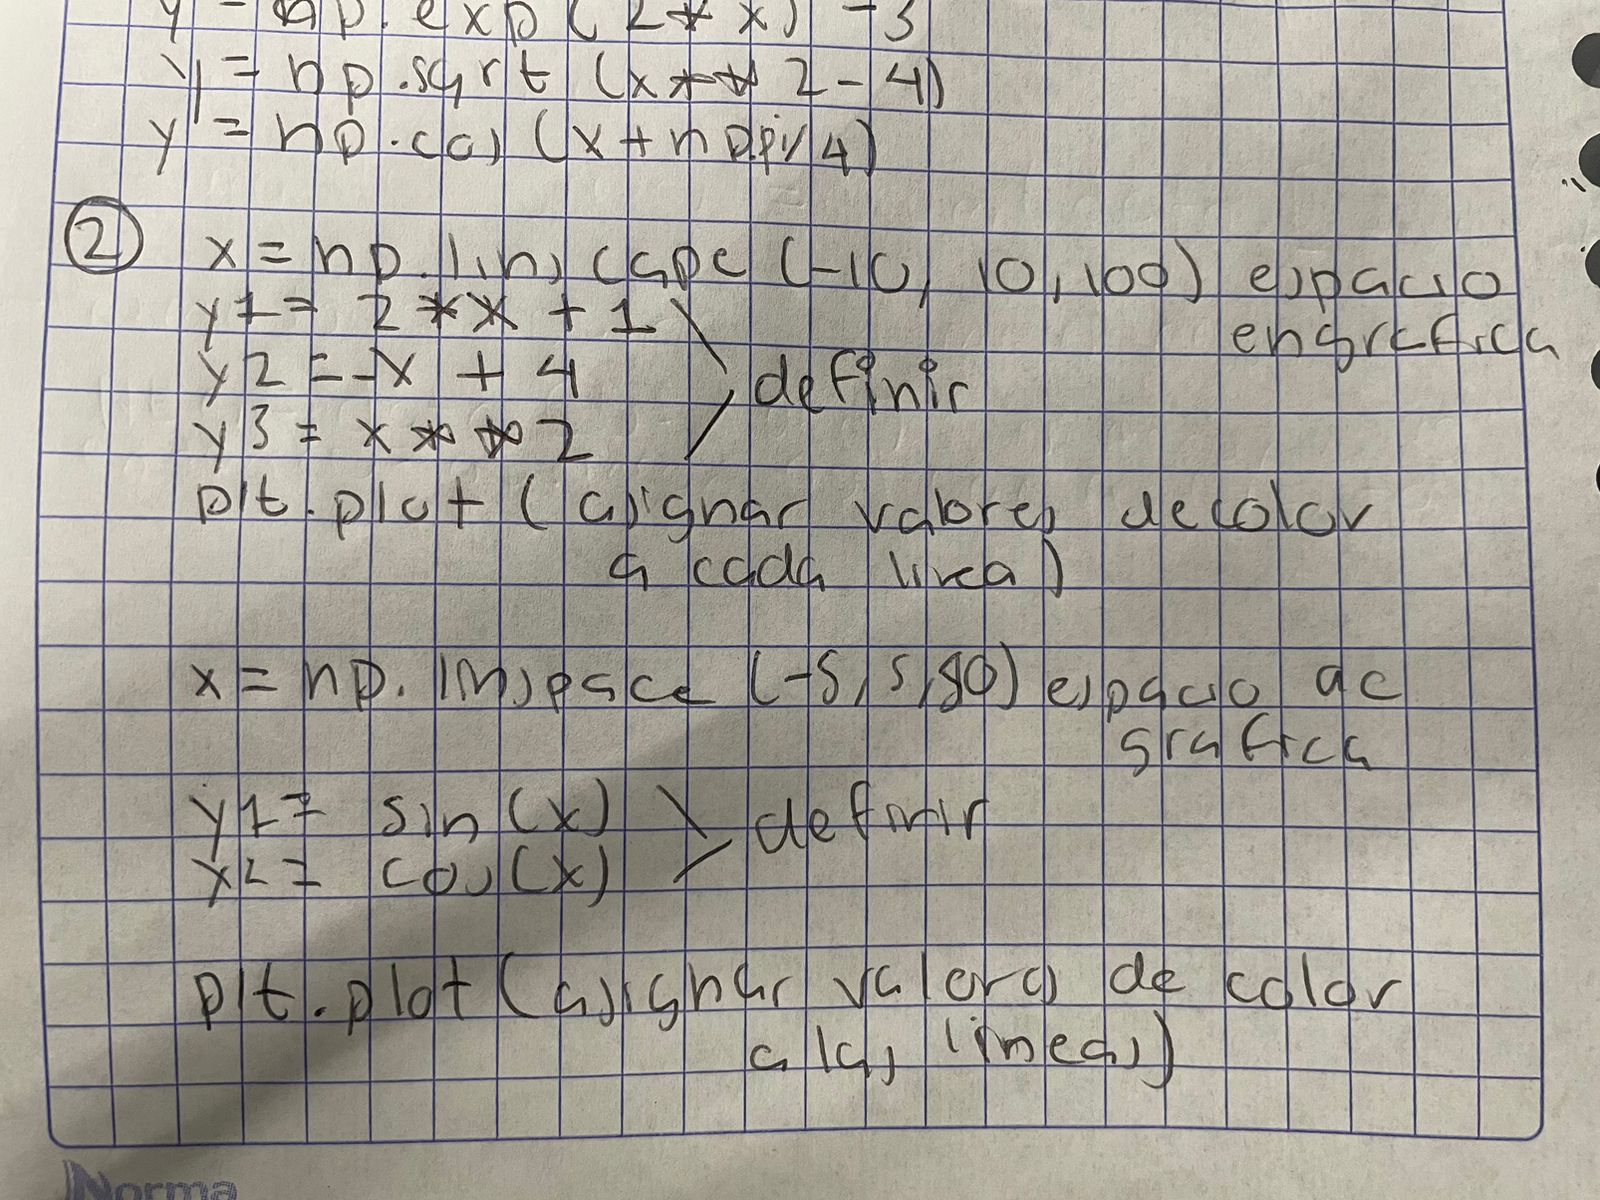 y = np.exp(2*x) - 3
y = np.sqrt(x**2-4)
y = np.cos(x+np.pi/4)
② x = np.linscape (-10, 10, 100) espacio
en grafica
y1= 2*x + 1
y2 = -x + 4
definir
y3 = x**2
plt.plot (asignar valores de color
a cada linea)
x = np.linspace (-5, 5, 80) espacio de
grafica
y1= sin(x)
definir
y2= cos(x)
plt.plot (asignar valores de color
a las lineas)
Norma